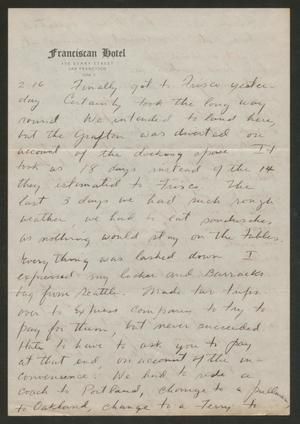 Franciscan Hotel
350 GEARY STREET
SAN FRANCISCO
2-16 Finally got to Frisco yester-
day Certainly took the long way
round We intended to land here,
but the Grafton was diverted on
account of the docking space It
took us 18 days instead of the 14
they estimated to Frisco. The
last 3 days we had such rough
weather, we had to eat sandwiches
as nothing would stay on the tables.
Everything was lashed down I
expressed my locker and Barracks
bag from Seattle. Made two trips
over to Express company to try to
pay for them, but never succeeded
Hate to have to ask you to pay
at that end, on account of the in-
convenience. We had to ride a
coach to Portland, change to a pullman
to Oakland, change to a Ferry to